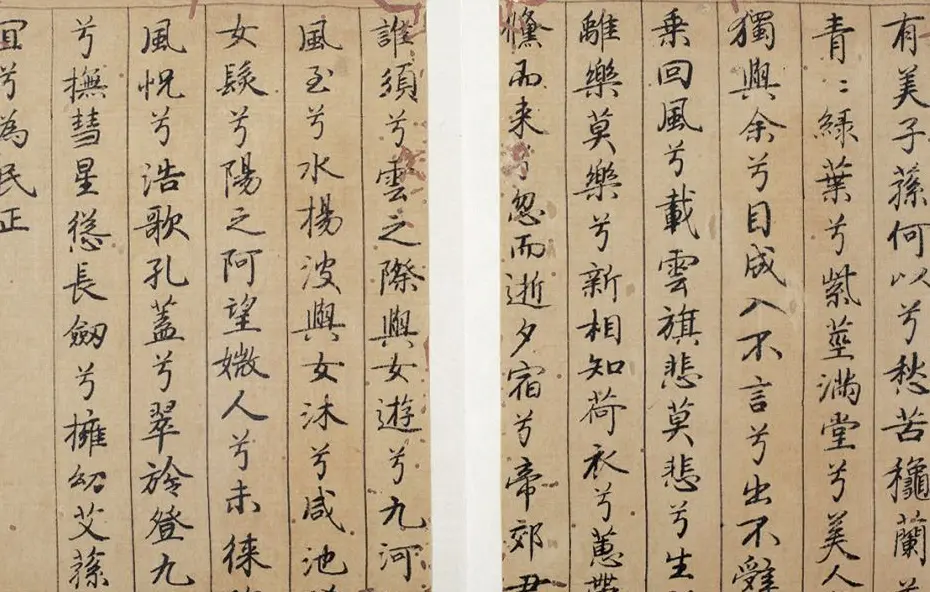 有美子蓀何以兮愁苦龝蘭
青〻綠葉兮紫莖滿堂兮美人
獨與余兮目成入不言兮出不辤
乗回風兮載雲旗悲莫悲兮生
離樂莫樂兮新相知荷衣兮蕙帶
儵而来兮忽而逝夕宿兮帝郊
誰須兮雲之際與女遊兮九河
風至兮水揚波與女沐兮咸池
女髮兮陽之阿望媺人兮未徠
風怳兮浩歌孔蓋兮翠旍登九
兮撫彗星慫長劔兮擁幼艾蓀
宜兮為民正